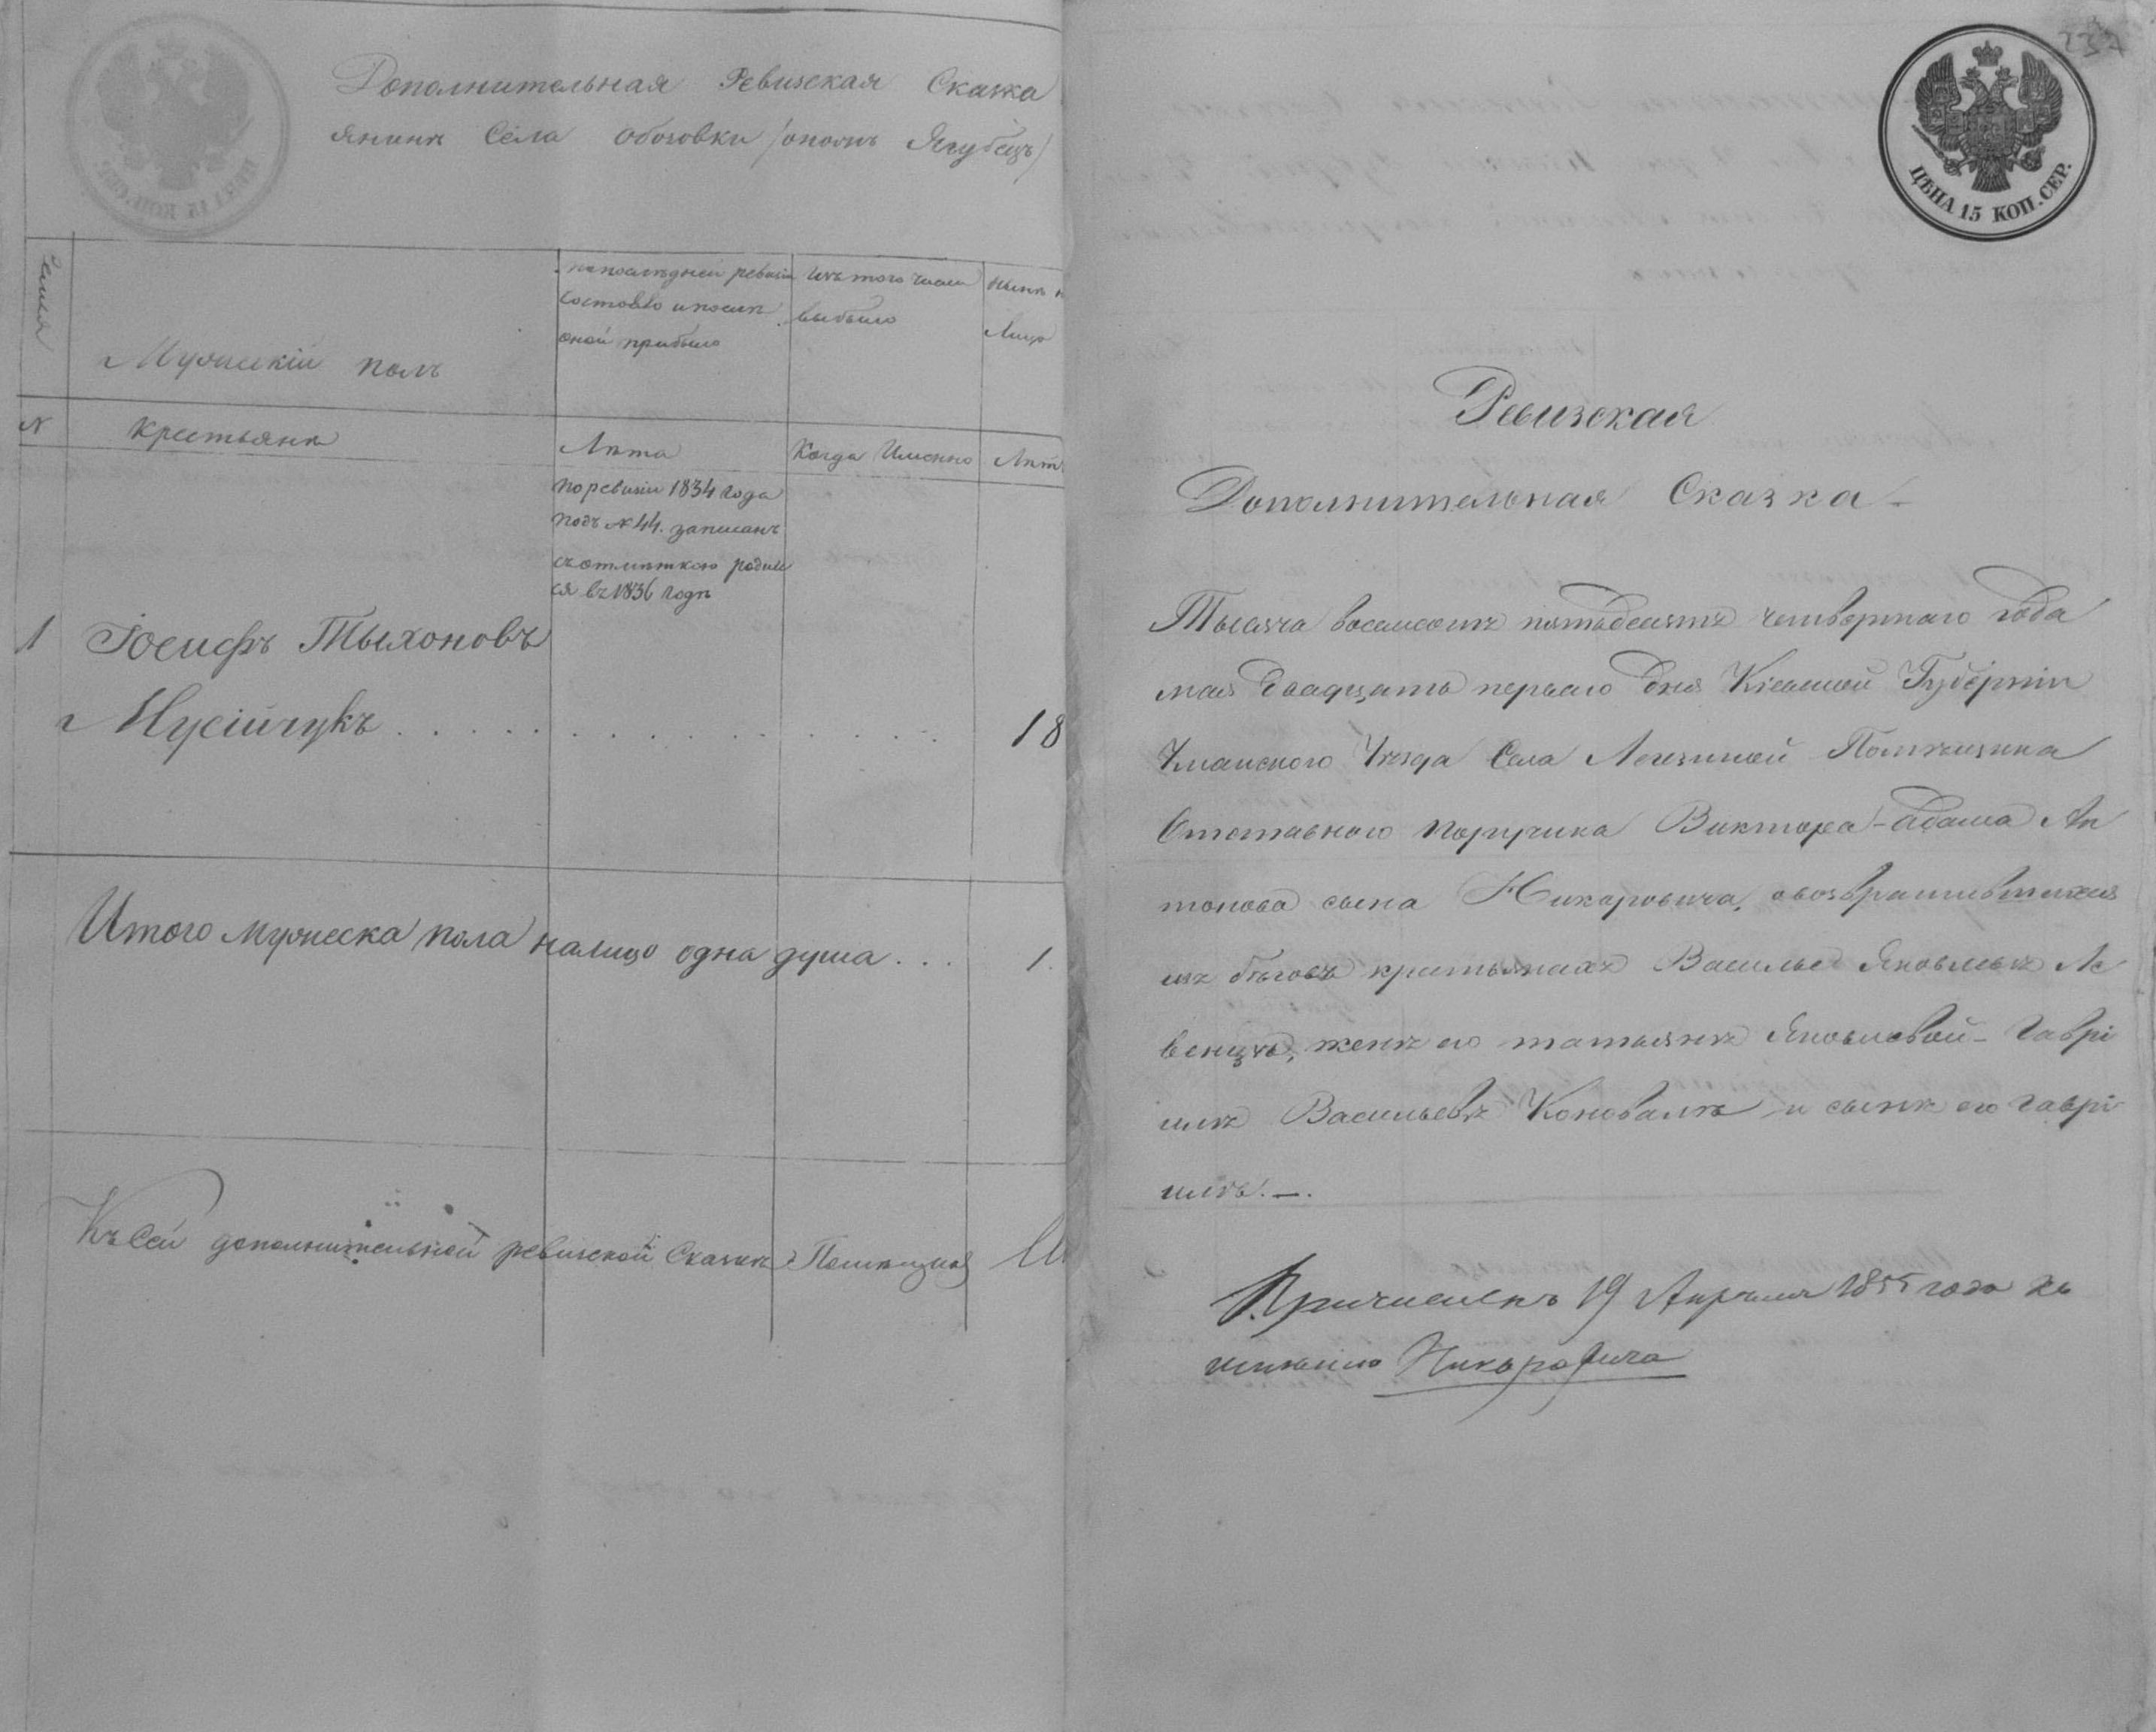 Дополнительная Ревизская Сказка
янинъ Села Обозовки /
Семья
Мужескій полъ
по последней ревизіи
состояло и после
оной прибыло
Изъ того числа
выбыло
Ныне
Лицо
N
Крестьяне
Лета
Когда Именно
Лет
по ревизіи 1834 года
подъ N 44. записанъ
съ отметкою родил
ся въ 1836 годе
1 Іосифъ Тыхоновъ
Мусійчукъ . . . . . . . . . . . . 18
Итого мужеска пола налицо одна душа . . . 1.
Къ Сей дополнительной ревизской Сказке
ЦѢНА 15 КОП. СЕР.
237
Ревизская
Дополнительная Сказка
Тысяча восемсотъ пятьдесятъ четвертаго года
мая двадцать перваго дня Кіевской Губерніи
Уманского Уезда Села Легезиной Помещика
Отставного порутчика Виктора-Адама Ан
тонова сына Никоровича, о возвратившихся
изъ беговъ крестьянахъ Василье Яковлеве Ле
венце, жене его татьяне Яковлевой - Гаврі
иле Васильеве Коновале и сыне его Гаврі
иле. —.
Причисленъ 19 Апреля 1855 года къ
именію Никоровича